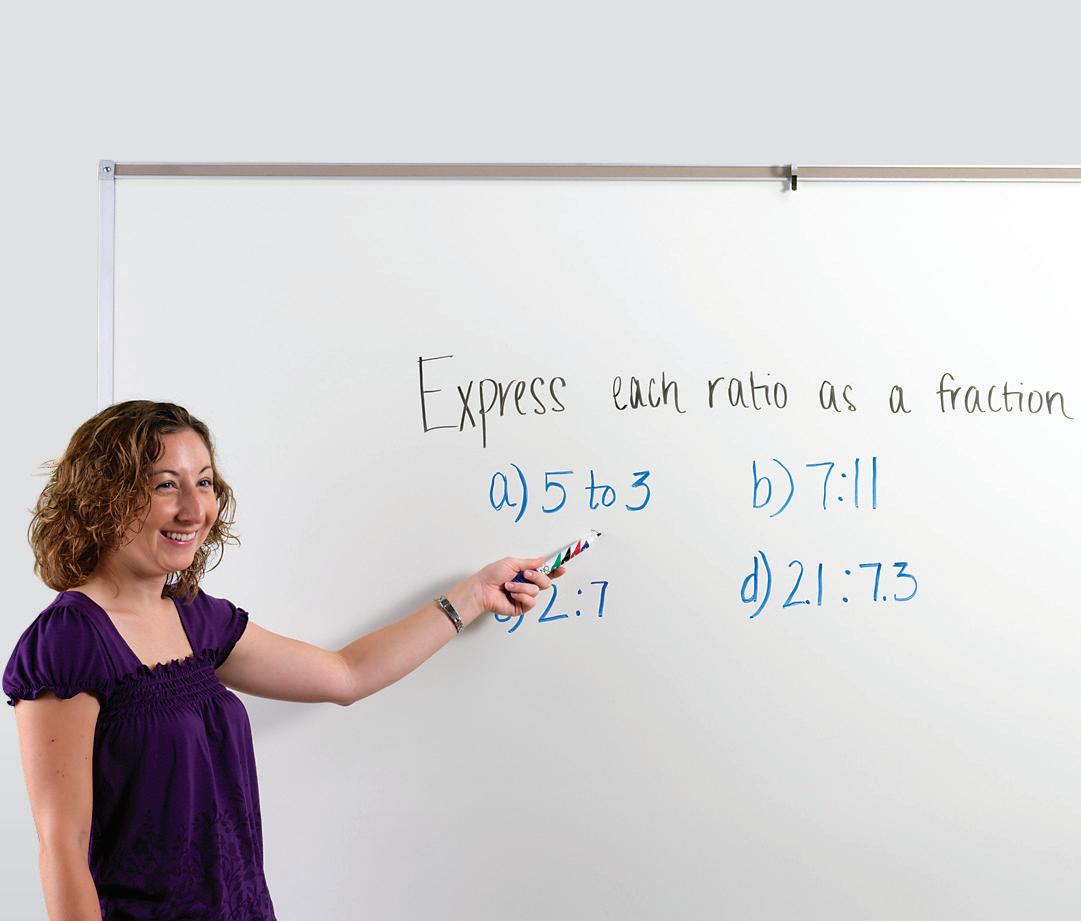 Express each ratio as a fraction
a) 5 to 3 b) 7:11
c) 2:7 d) 2.1 : 7.3